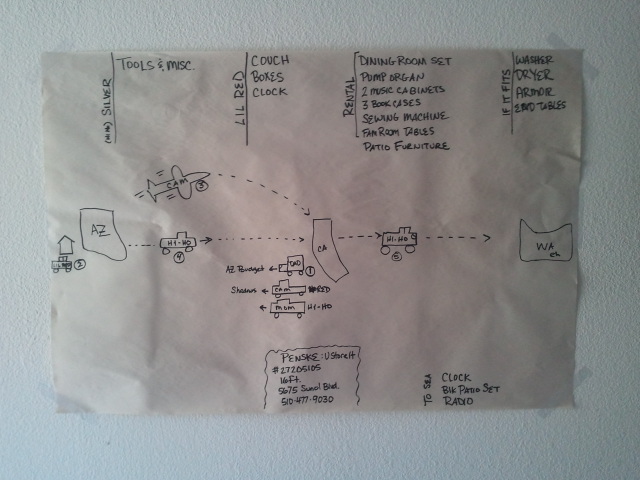 (Hi Ho) SILVER
TOOLS & MISC.
LIL RED
COUCH
BOXES
CLOCK
RENTAL
DINING ROOM SET
PUMP ORGAN
2 MUSIC CABINETS
3 BOOK CASES
SEWING MACHINE
FAM ROOM TABLES
PATIO FURNITURE
IF IT FITS
WASHER
DRYER
ARMOR
2 END TABLES
CAM
3
AZ
2
HI-HO
4
CA
HI-HO
5
WA
eh
AZ Budget
DAD
1
Shadows
CAM
RED
MOM
HI-HO
PENSKE: UStoreIt
#27205105
16ft.
5675 Sunol Blvd.
510-477-9030
TO SEA
CLOCK
BLK PATIO SET
RADIO